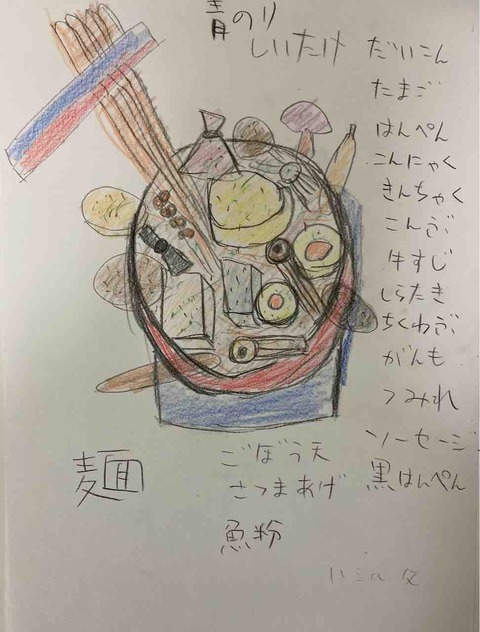 青のり
しいたけ
だいこん
たまご
はんぺん
こんにゃく
きんちゃく
こんぶ
牛すじ
しらたき
ちくわぶ
がんも
つみれ
ソーセージ
黒はんぺん
麺
ごぼう天
さつまあげ
魚粉